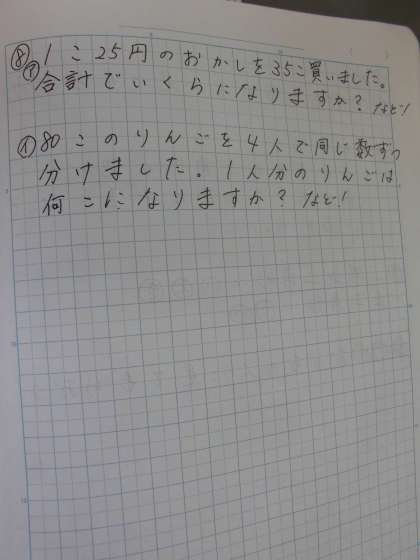 ⑧ 1こ25円のおかしを35こ買いました。
㋐ 合計でいくらになりますか? など!
㋑ 80このりんごを4人で同じ数ずつ
分けました。1人分のりんごは
何こになりますか? など!